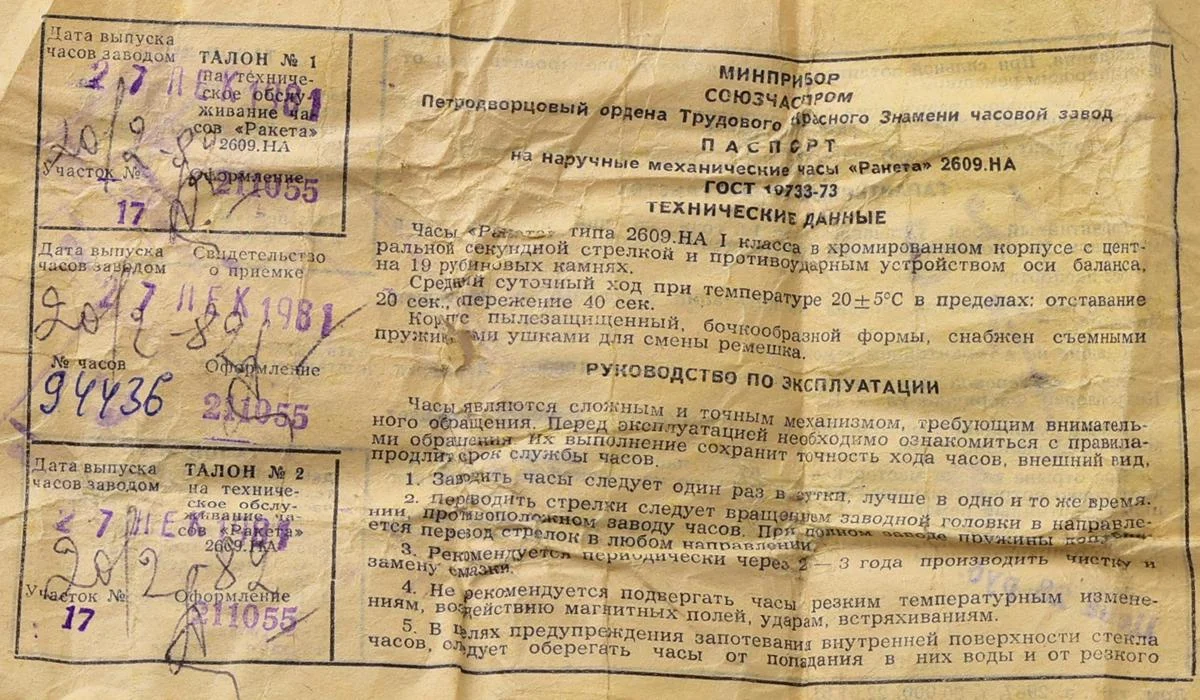 Дата выпуска
часов заводом
27 ДЕК 1981
ТАЛОН № 1
на техниче-
ское обслу-
живание ча-
сов «Ракета»
2609.НА
20/2-82
Участок №
17
Оформление
211055
Дата выпуска
часов заводом
27 ДЕК 1981
Свидетельство
о приемке
20/2-82
№ часов
94436
Оформление
211055
Дата выпуска
часов заводом
27 ДЕК 1981
ТАЛОН № 2
на техниче-
ское обслу-
живание ча-
сов «Ракета»
2609.НА
20/2-82
Участок №
17
Оформление
211055
МИНПРИБОР
СОЮЗЧАСПРОМ
Петродворцовый ордена Трудового Красного Знамени часовой завод
ПАСПОРТ
на наручные механические часы «Ракета» 2609.НА
ГОСТ 10733-73
ТЕХНИЧЕСКИЕ ДАННЫЕ
Часы «Ракета» типа 2609.НА I класса в хромированном корпусе с цент-
ральной секундной стрелкой и противоударным устройством оси баланса,
на 19 рубиновых камнях.
Средний суточный ход при температуре 20±5°С в пределах: отставание
20 сек., опережение 40 сек.
Корпус пылезащищенный, бочкообразной формы, снабжен съемными
пружинными ушками для смены ремешка.
РУКОВОДСТВО ПО ЭКСПЛУАТАЦИИ
Часы являются сложным и точным механизмом, требующим вниматель-
ного обращения. Перед эксплуатацией необходимо ознакомиться с правила-
ми обращения. Их выполнение сохранит точность хода часов, внешний вид,
продлит срок службы часов.
1. Заводить часы следует один раз в сутки, лучше в одно и то же время.
2. Переводить стрелки следует вращением заводной головки в направле-
нии, противоположном заводу часов. При полном заводе пружины допуска-
ется перевод стрелок в любом направлении.
3. Рекомендуется периодически через 2—3 года производить чистку и
замену смазки.
4. Не рекомендуется подвергать часы резким температурным измене-
ниям, воздействию магнитных полей, ударам, встряхиваниям.
5. В целях предупреждения запотевания внутренней поверхности стекла
часов, следует оберегать часы от попадания в них воды и от резкого